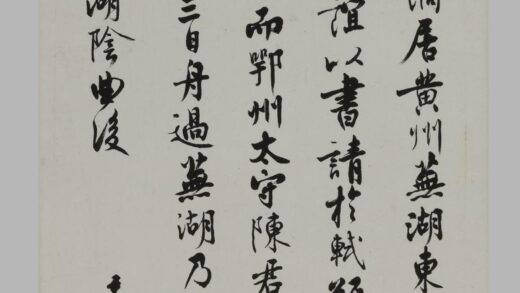 謫居黄州蕪湖東
誼以書請於軾
而鄂州太守陳君
三日舟過蕪湖乃
湖陰曲後